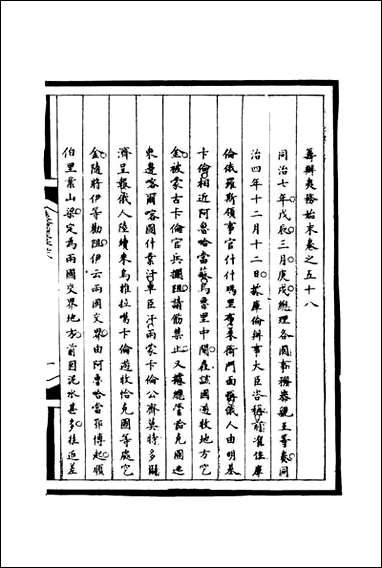 籌辦夷務始末卷之五十八
同治七年戊辰三月庚戌總理各國事務恭親王等奏同
治四年十二月十二日據庫倫辦事大臣咨稱前准住庫
倫俄羅斯領事官什什瑪里布來衙門面稱俄人由明基
卡倫相近阿魯哈當蘇烏魯里中間在該國遊牧地方挖
金被蒙古卡倫官兵攔阻請飭禁止又據總管給克圖巡
東邊喀爾喀圖什業汗車臣汗兩蒙卡倫公齊莫特多爾
濟呈報俄人陸續來烏雅拉噶卡倫遊牧恰克圖等處挖
金隨將伊等勸阻伊云兩國交界由阿魯哈當鄂博起順
伯里業山梁定為兩國交界地方前因泥水甚多往返差